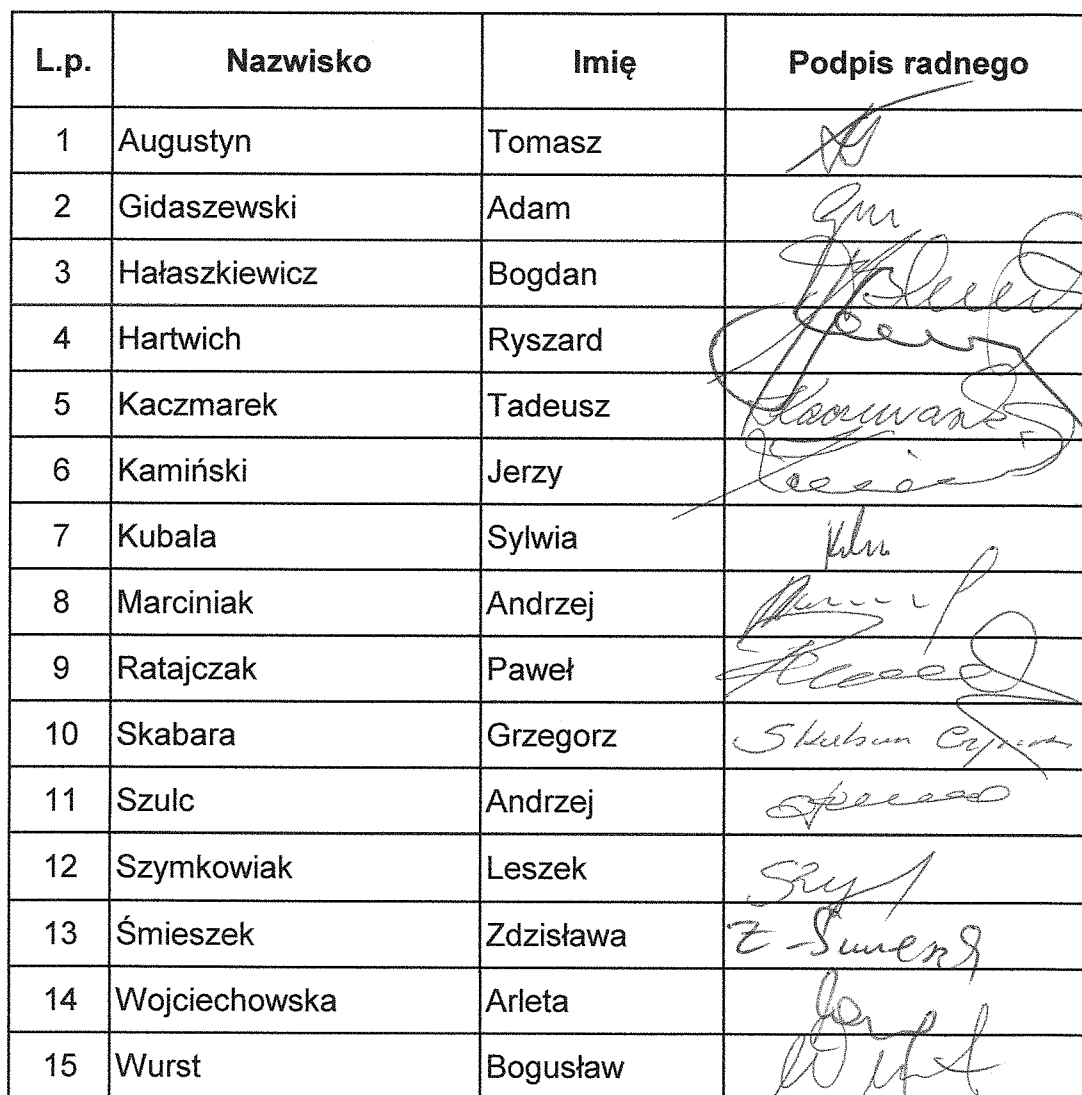 L.p. Nazwisko Imię Podpis radnego
1 Augustyn Tomasz
2 Gidaszewski Adam
3 Hałaszkiewicz Bogdan
4 Hartwich Ryszard
5 Kaczmarek Tadeusz
6 Kamiński Jerzy
7 Kubala Sylwia
8 Marciniak Andrzej
9 Ratajczak Paweł
10 Skabara Grzegorz
11 Szulc Andrzej
12 Szymkowiak Leszek
13 Śmieszek Zdzisława
14 Wojciechowska Arleta
15 Wurst Bogusław